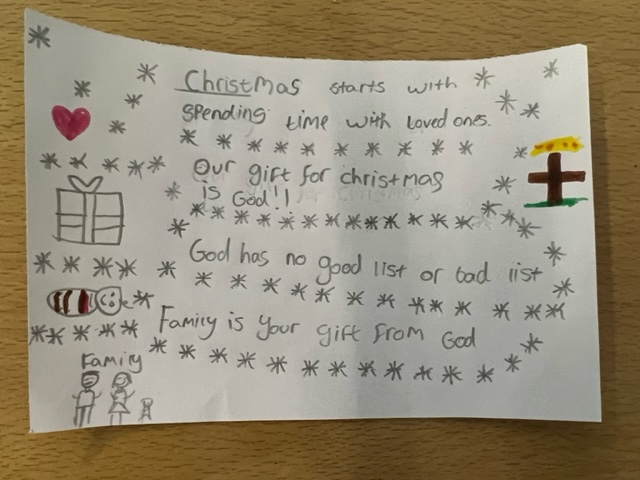 Christmas starts with
spending time with loved ones.
Our gift for christmas
is God!!
God has no good list or bad list
Family is your gift from God
Family